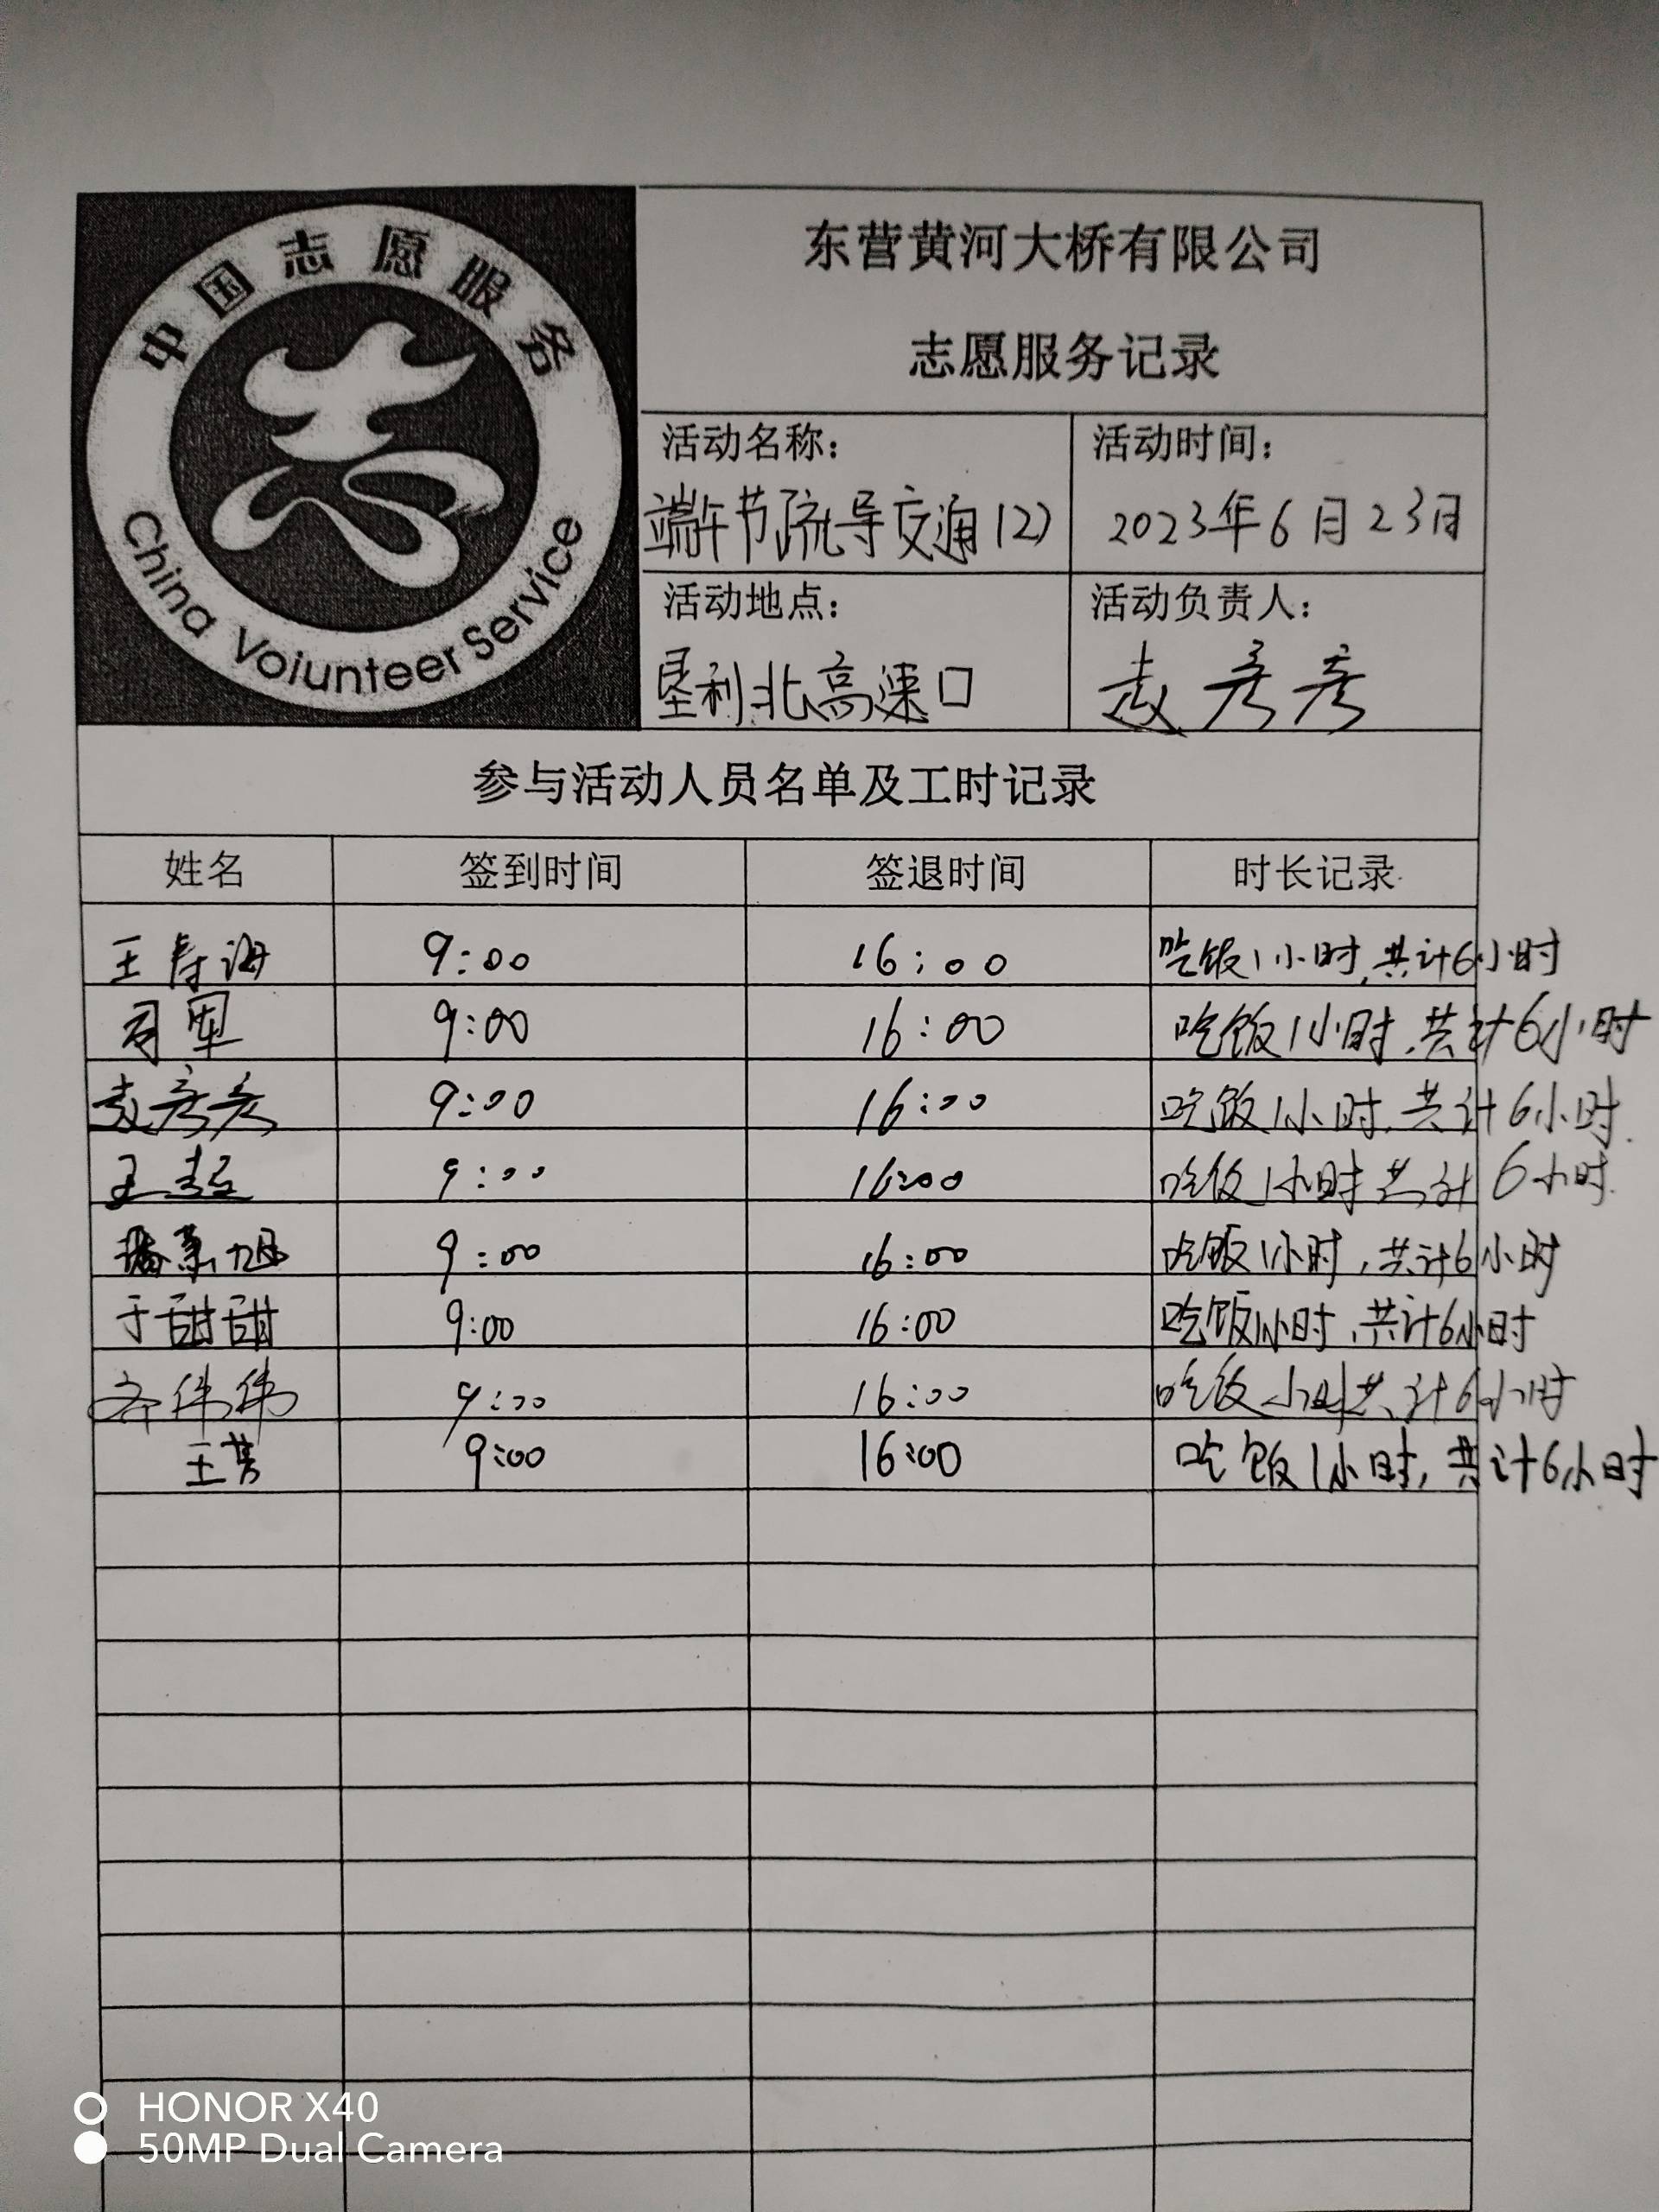 中国志愿服务
China Voiunteer Service
东营黄河大桥有限公司
志愿服务记录
活动名称:
端午节疏导交通(2)
活动时间:
2023年6月23日
活动地点:
垦利北高速口
活动负责人:
赵彦彦
参与活动人员名单及工时记录
姓名 签到时间 签退时间 时长记录
王寿海 9:00 16:00 吃饭1小时,共计6小时
司军 9:00 16:00 吃饭1小时,共计6小时
赵彦彦 9:00 16:00 吃饭1小时,共计6小时.
王 9:00 16:00 吃饭1小时共计6小时.
旭 9:00 16:00 吃饭1小时,共计6小时
于甜甜 9:00 16:00 吃饭1小时,共计6小时
伟伟 9:00 16:00 吃饭小时共计6小时
王芳 9:00 16:00 吃饭1小时,共计6小时
HONOR X40
50MP Dual Camera